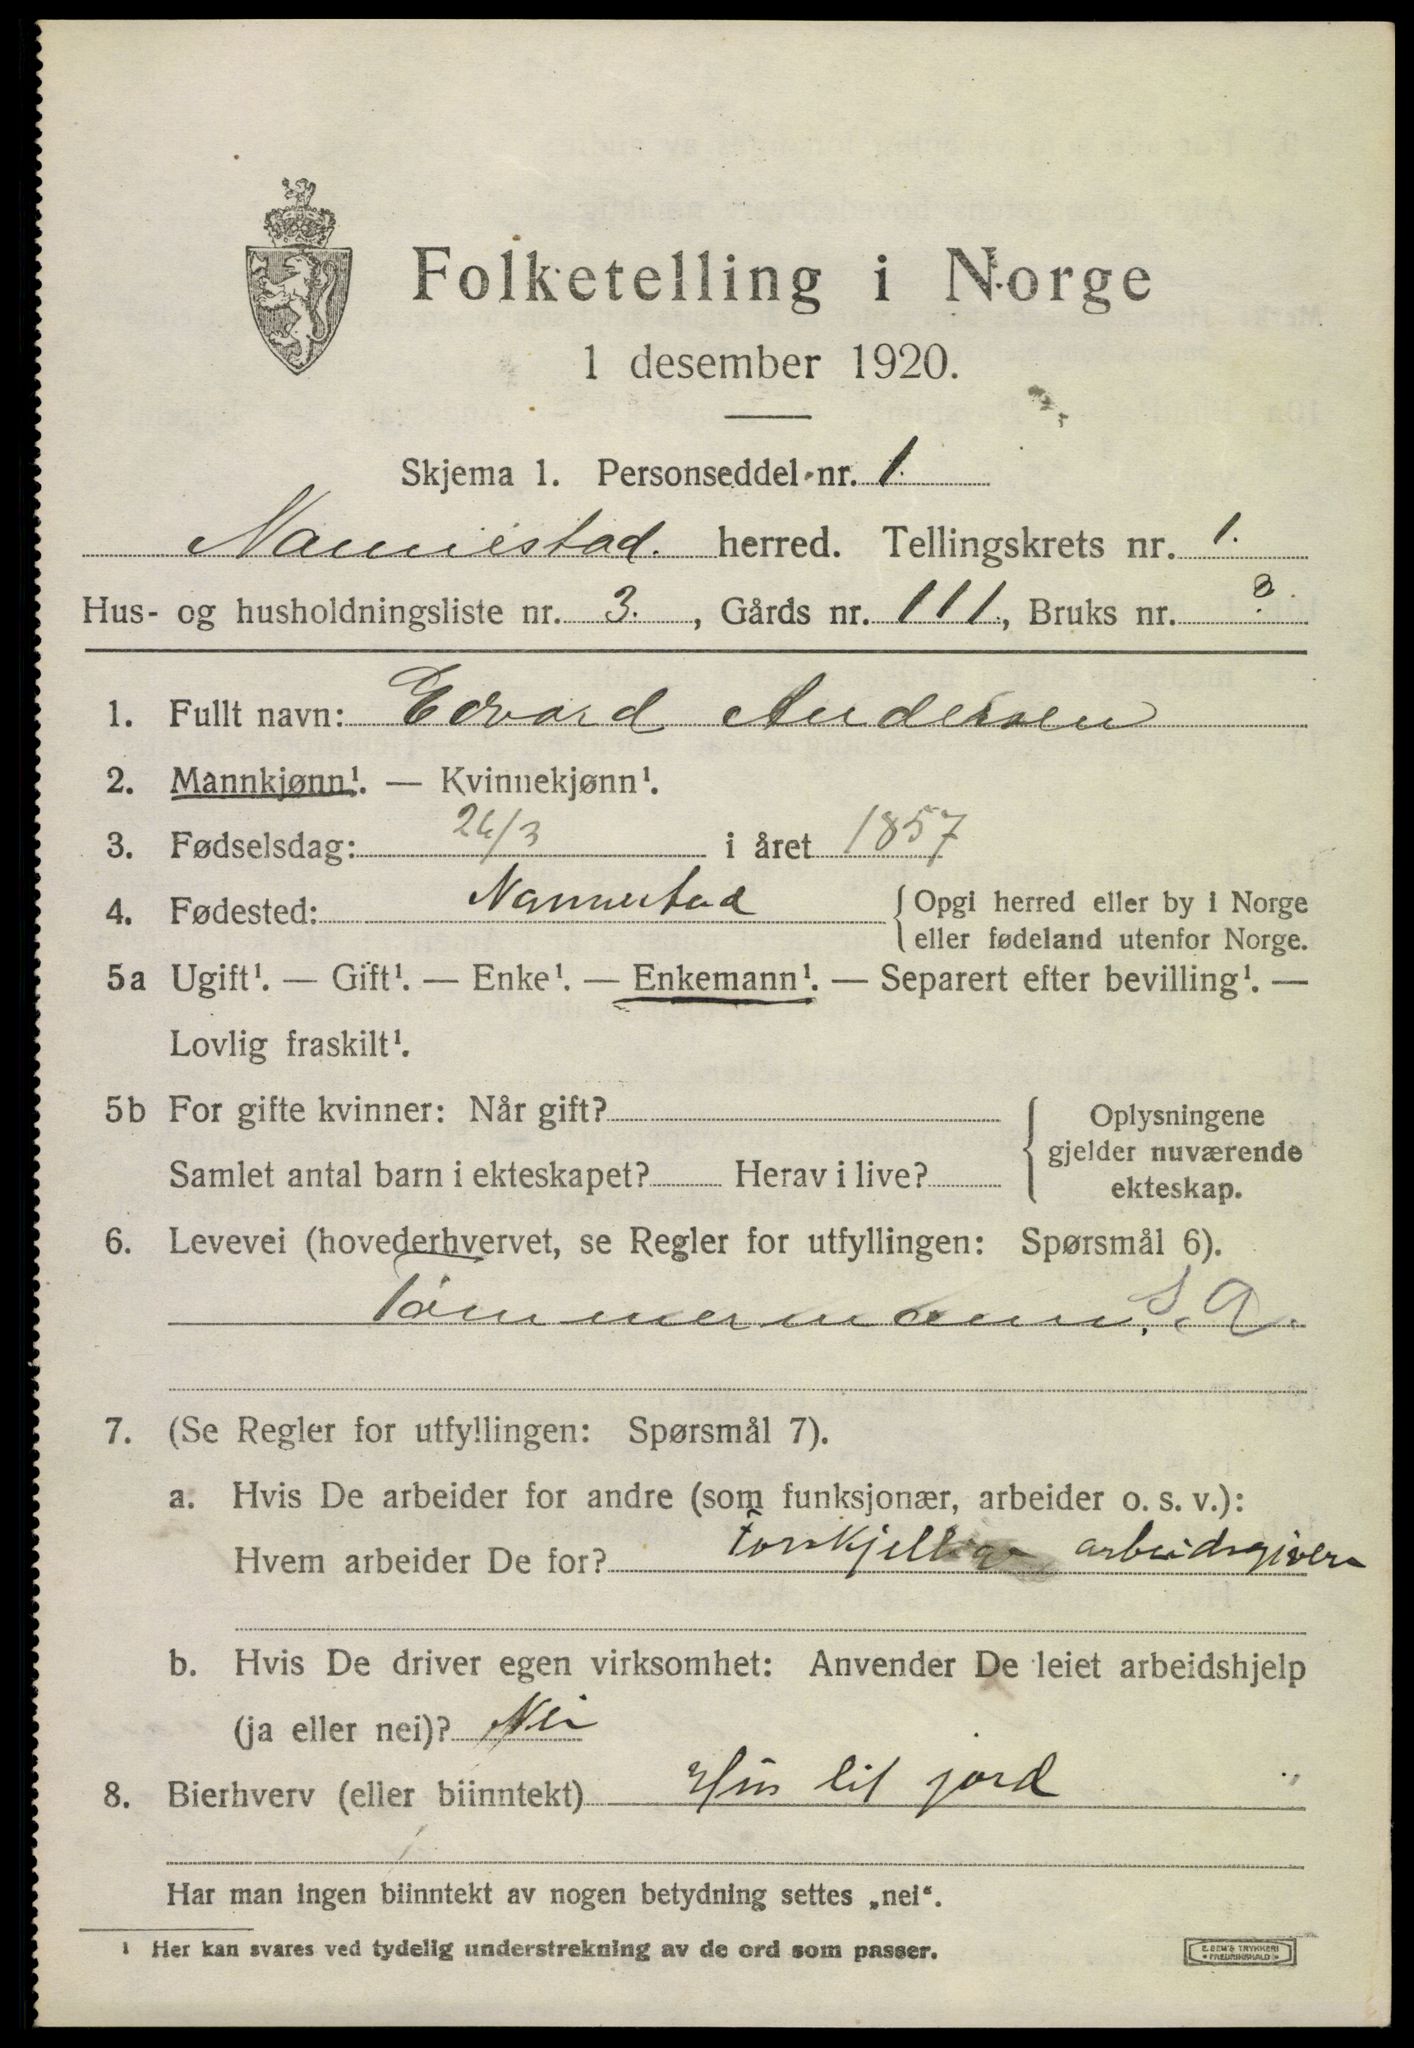 Folketelling i Norge
1 desember 1920.
Skjema 1. Personseddel nr. 1.
Nannestad. herred. Tellingskrets nr. 1.
Hus- og husholdningsliste nr. 3., Gårds nr. 111, Bruks nr. 3
1. Fullt navn: Edvard Andersen
2. Mannkjønn¹. — Kvinnekjønn¹.
3. Fødselsdag: 26/3 i året 1857
4. Fødested: Nannestad { Opgi herred eller by i Norge
eller fødeland utenfor Norge.
5a Ugift¹. — Gift¹. — Enke¹. — Enkemann¹. — Separert efter bevilling¹. —
Lovlig fraskilt¹.
5b For gifte kvinner: Når gift?
Samlet antal barn i ekteskapet? Herav i live?
{ Oplysningene
gjelder nuværende
ekteskap.
6. Levevei (hovederhvervet, se Regler for utfyllingen: Spørsmål 6).
Tømmermann, S. A.
7. (Se Regler for utfyllingen: Spørsmål 7).
a. Hvis De arbeider for andre (som funksjonær, arbeider o. s. v.):
Hvem arbeider De for? Forskjellige arbeidsgivere
b. Hvis De driver egen virksomhet: Anvender De leiet arbeidshjelp
(ja eller nei)? Nei
8. Bierhverv (eller biinntekt) Hus lit jord
Har man ingen biinntekt av nogen betydning settes „nei“.
¹ Her kan svares ved tydelig understrekning av de ord som passer.
E. SEM'S TRYKKERI
FREDRIKSHALD